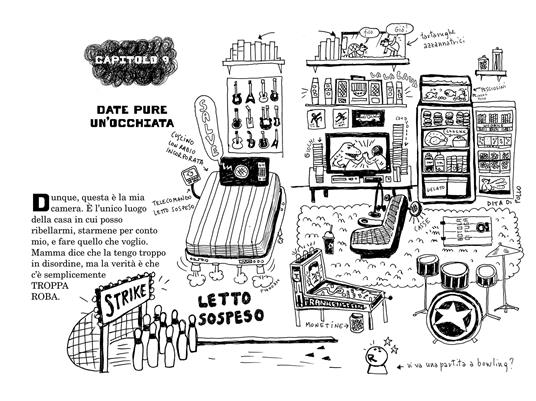 CAPITOLO 9
DATE PURE
UN'OCCHIATA
Dunque, questa è la mia
camera. È l'unico luogo
della casa in cui posso
ribellarmi, starmene per conto
mio, e fare quello che voglio.
Mamma dice che la tengo troppo
in disordine, ma la verità è che
c'è semplicemente
TROPPA
ROBA.
SALVE
CUSCINO
CON RADIO
INCORPORATA
TELECOMANDO
LETTO SOSPESO
LETTO
SOSPESO
STRIKE
Giò
tartarughe
azzannatrici
LA LA LAVA
PESCIOLINI
GELATO
DITA DI POLLO
FRANKENSTEIN
MONETINE
vi va una partita a bowling?